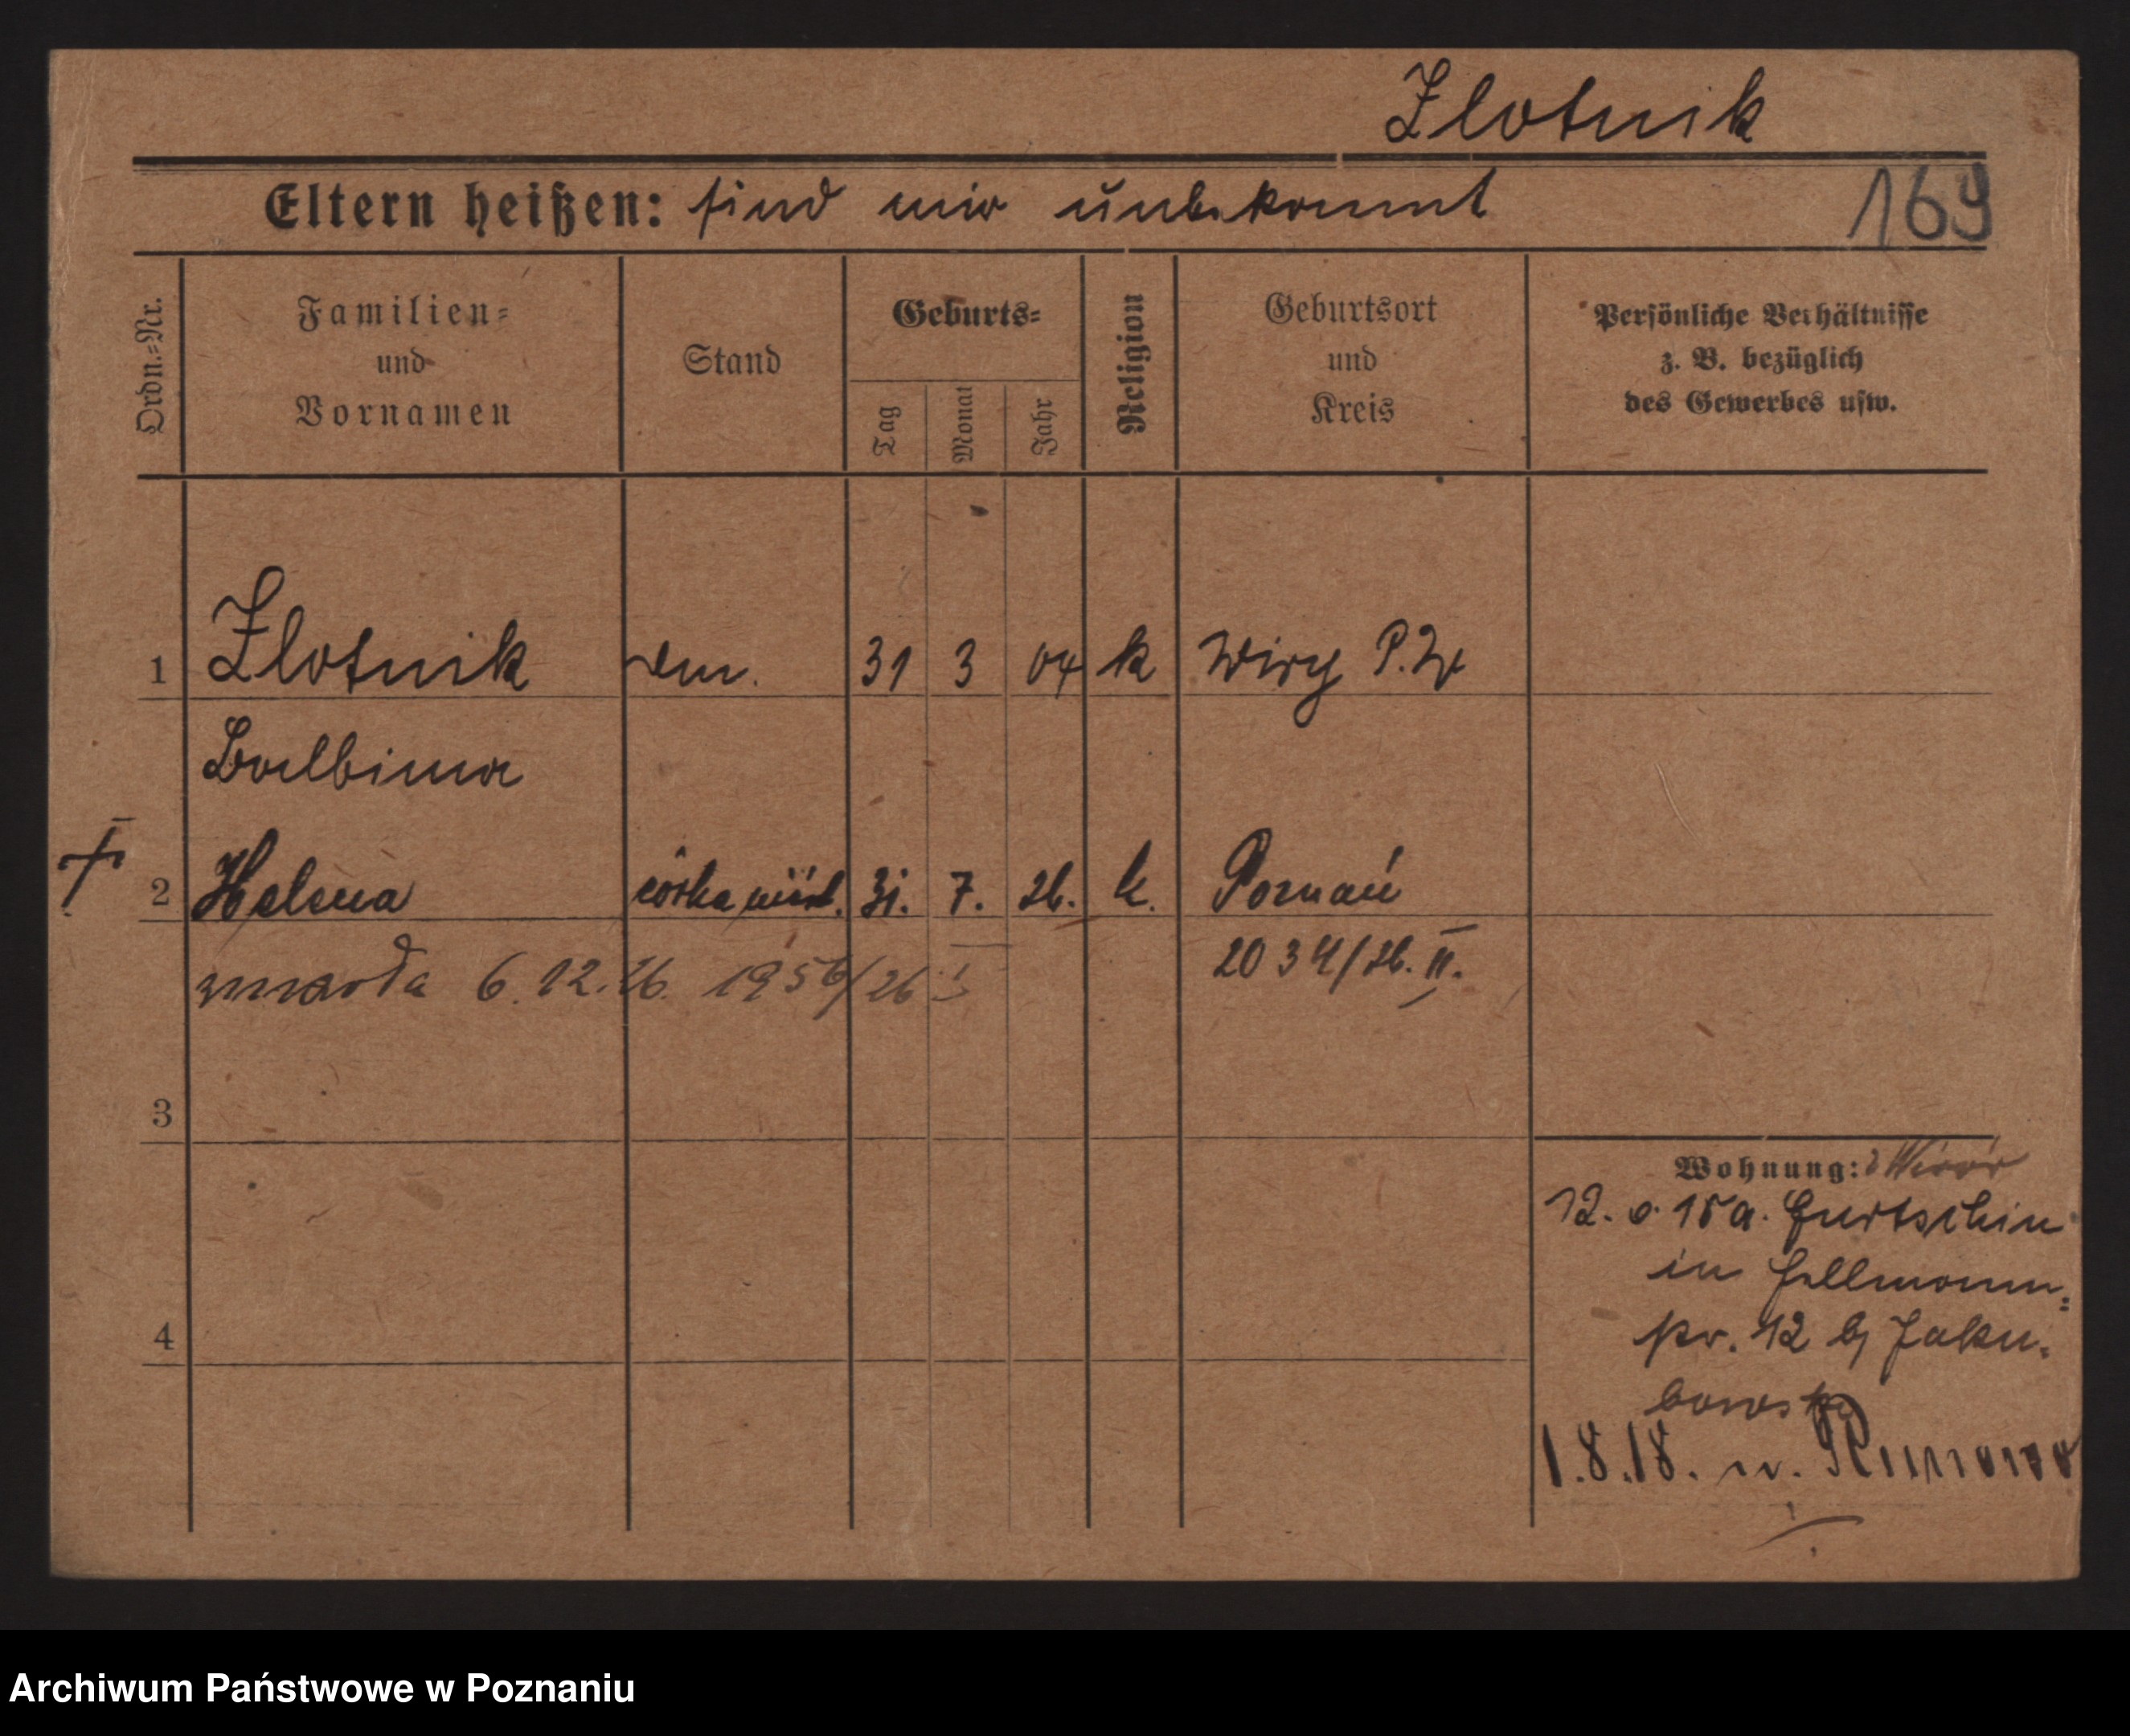 Zlotnik
Eltern heißen: sind mir unbekannt
169
Ordn.=Nr.
Familien=
und
Vornamen
Stand
Geburts=
Tag
Monat
Jahr
Religion
Geburtsort
und
Kreis
Persönliche Verhältnisse
z. B. bezüglich
des Gewerbes usw.
1 Zlotnik 31 3 04 k Wiry P. W
Balbina
2 Helena córka 31. 7. 26. k. Poznań
zmarła 6.12.26. 1956/26
2034/26. II.
3
Wohnung:
12. 15 a. Gurtschin
in Hellmann=
str. 12 b/ Jaku=
4
1.8.18. n.
Archiwum Państwowe w Poznaniu